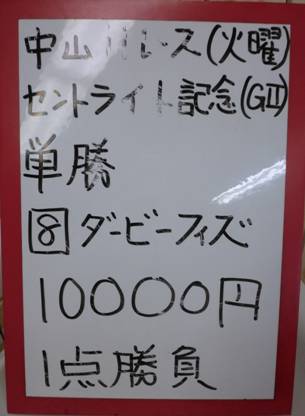 中山11レース(火曜)
セントライト記念(GⅡ)
単勝
8 ダービーフィズ
10000円
1点勝負